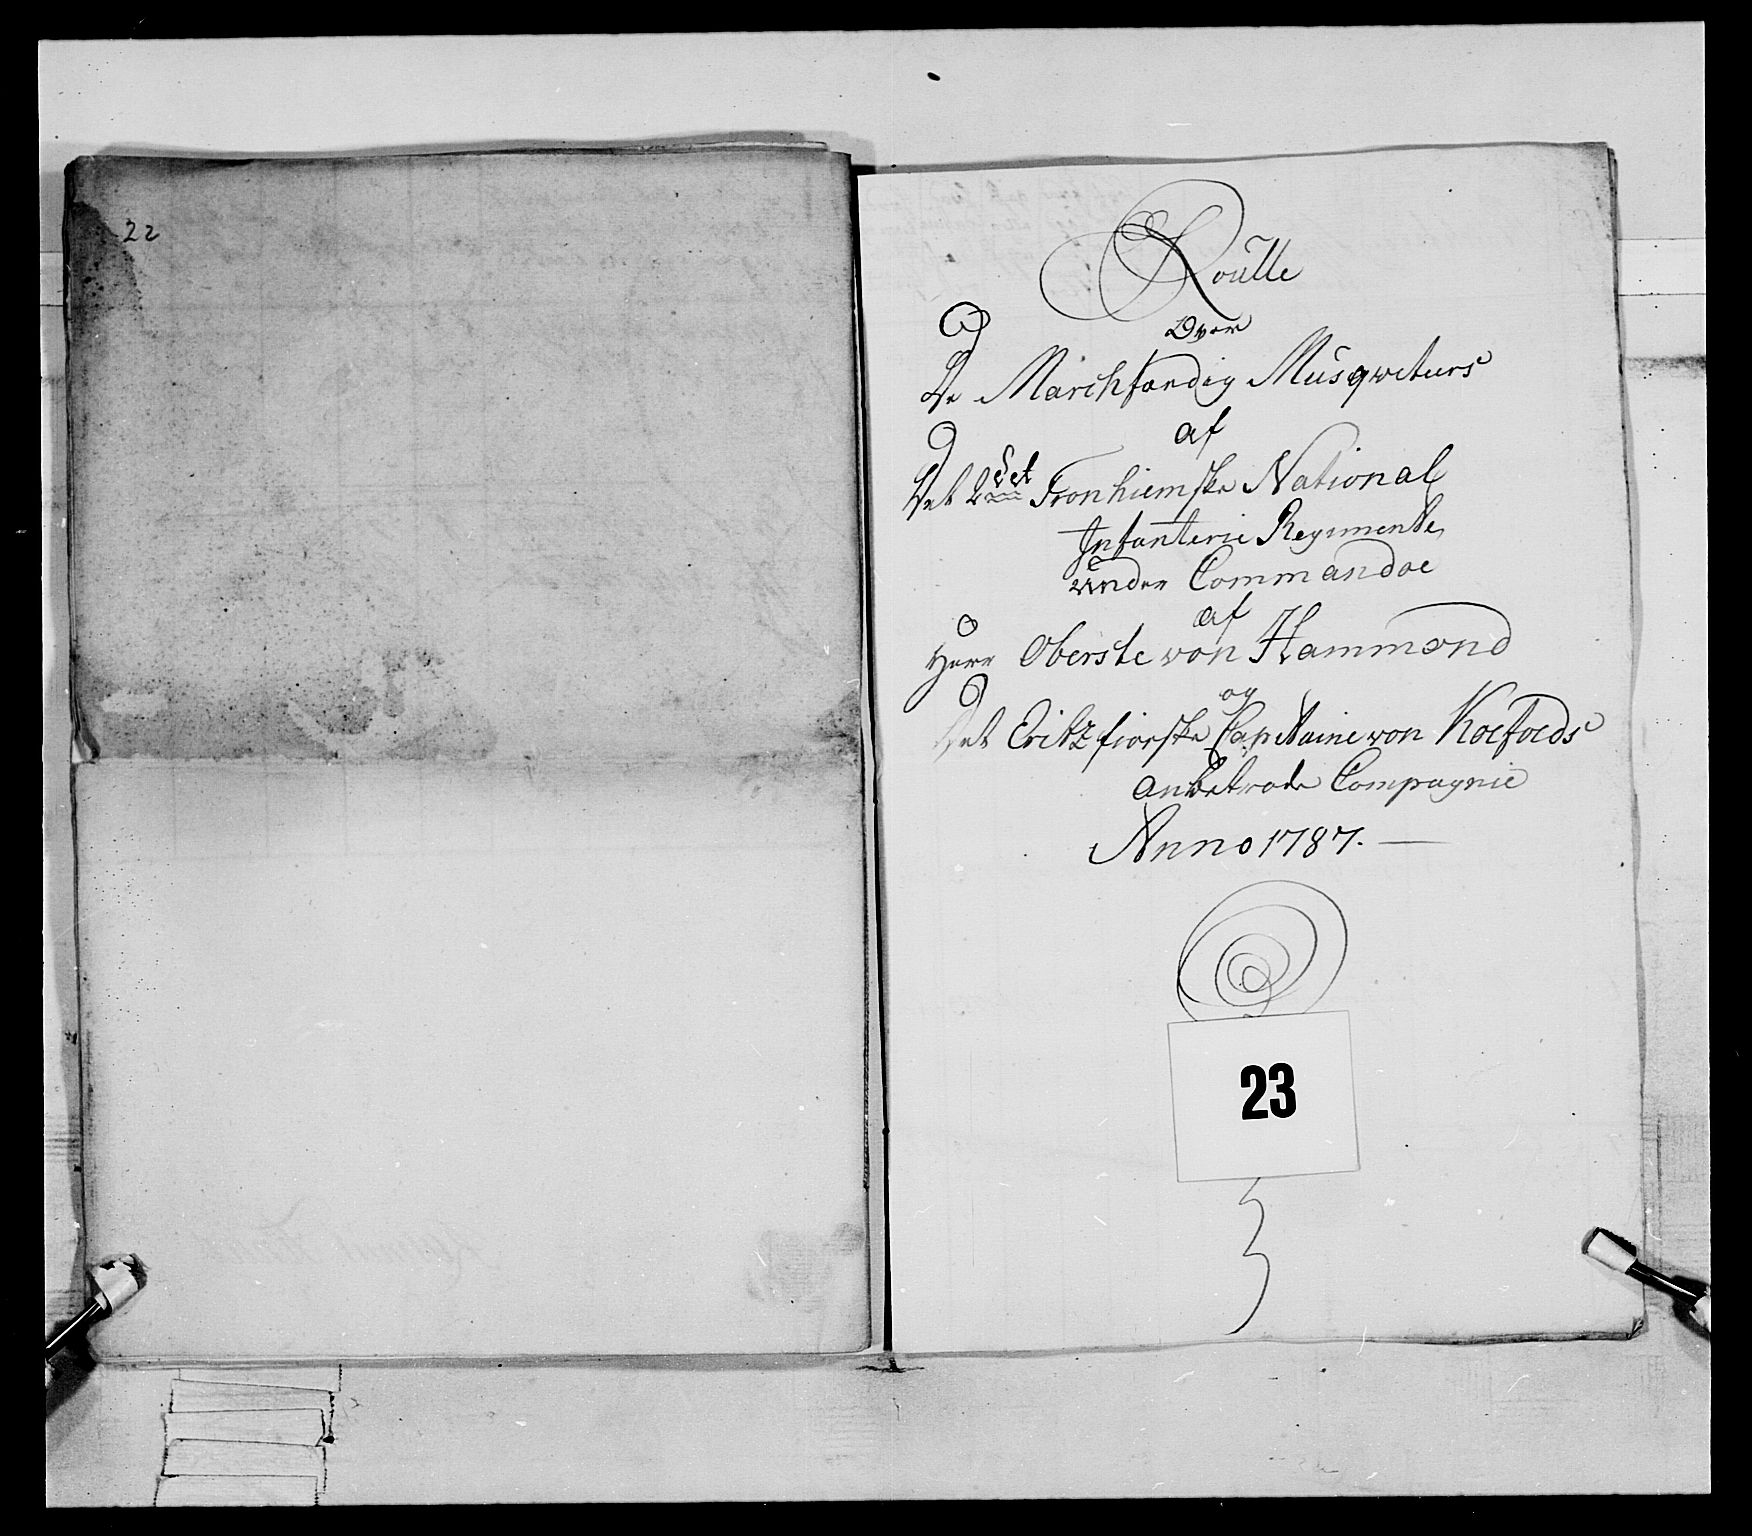 22
Roulle
Over
De Marchfærdig Musqveteurs
af
Det 2det Tronhiemske National
Infanterie Regimente
under Commandoe
af
Herr Oberste von Hammond
og
Det Eritzfiorske Capitaine von Koefoeds
anbetroede Compagnie
Anno 1787.
23